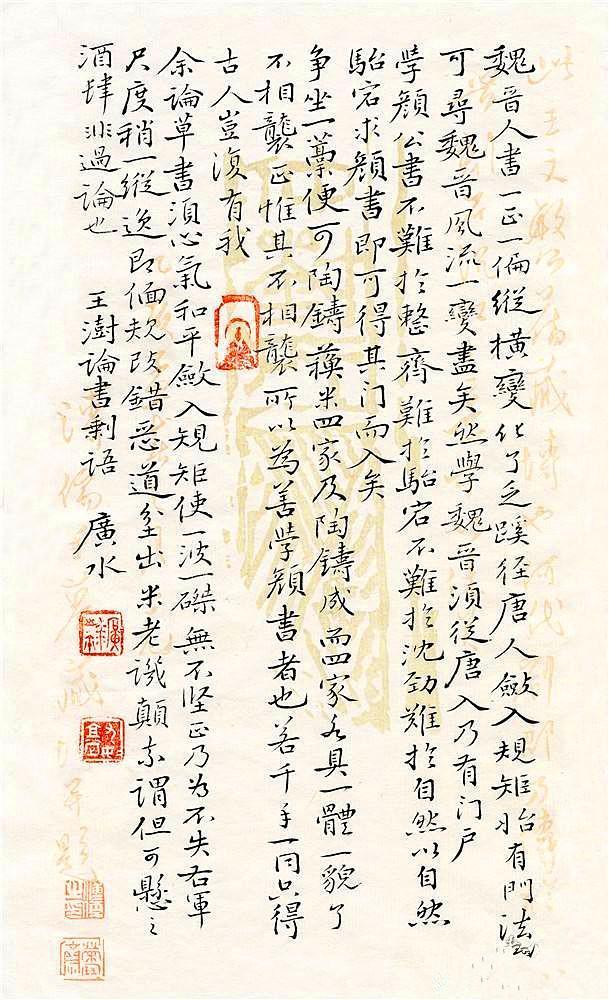 魏晋人書一正一偏縱横變化了乏蹊徑唐人斂入規矩始有門法
可尋魏晋風流一變盡矣然學魏晋須從唐入乃有门户
學顔公書不難於整齊難於駘宕不難於沈劲難於自然以自然
駘宕求顔書即可得其门而入矣
争坐一藁便可陶鑄蘇米四家及陶鑄成而四家各具一體一貌了
不相襲正惟其不相襲所以為善學顔書者也若千手一同只得
古人豈復有我
余論草書須心氣和平斂入規矩使一波一磔無不坚正乃为不失右軍
尺度稍一縱逸即偭規改錯恶道坌出米老譏顛素謂但可懸之
酒肆非過論也
王澍論書剩語 廣水